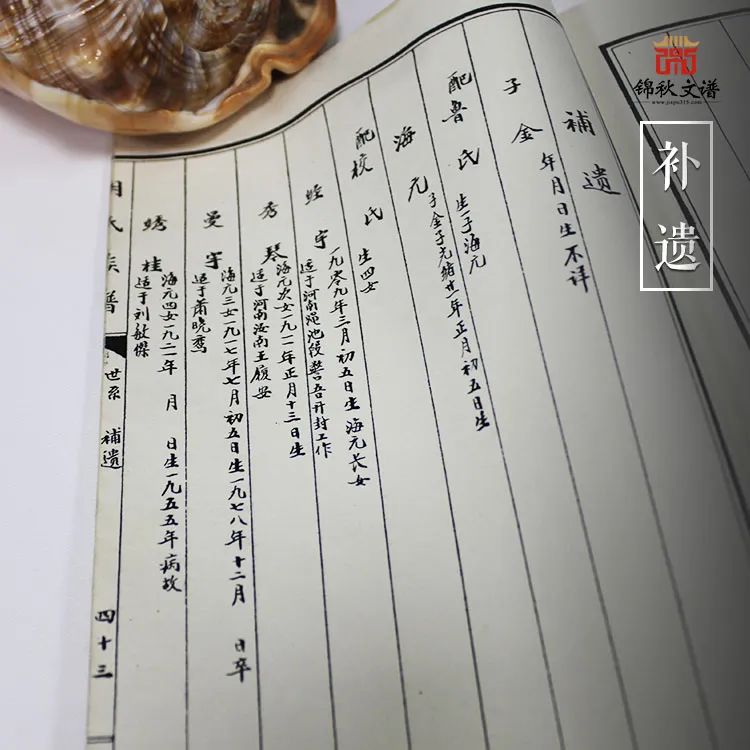 锦秋文谱
www.jiapu315.com
补遗
補遺
子金 年月日生不详
配鲁氏 生一子海元
海元 子金子光绪廿一年正月初五日生
配校氏 生四女
宇 一九零九年三月初五日生海元长女
适于河南渑池段警吾开封工作
秀琴 海元次女一九一一年正月十三日生
适于河南汝南王俊安
曼宇 海元三女一九一七年七月初五日生一九七八年十二月 日卒
适于萧晓鸾
桂 海元四女一九二一年 月 日生一九五五年病故
适于刘敏傑
氏族譜
世系 補遺
四十三